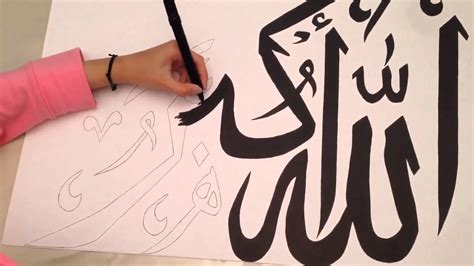 الله أكبر